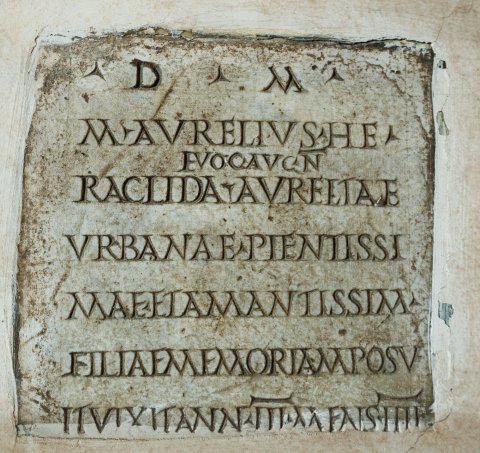 D M
M AVRELIVS HE
EVOC AVG N
RACLIDA AVRELIAE
VRBANAE PIENTISSI
MAE ET AMANTISSIM
FILIAE MEMORIAM POSV
IT VIXIT ANN III MENS IIII